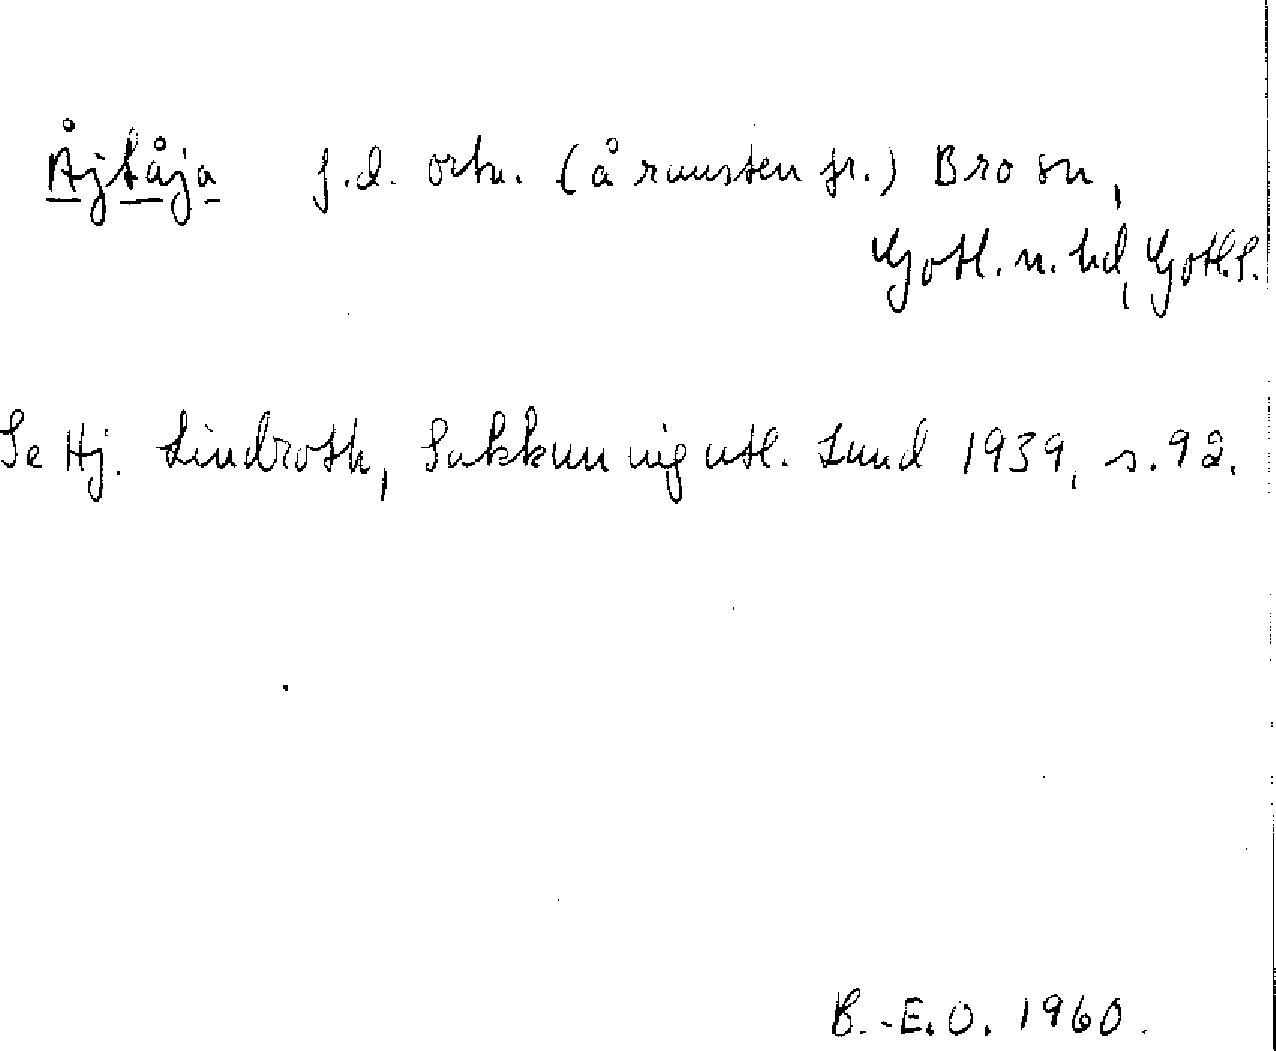 Åjlåja f.d. ortn. (å runsten fr.) Bro sn,
Gotl. n. hd, Gotl.l.
Se Hj. Lindroth, Sakkunnigutl. Lund 1939, s. 92.
B.-E.O. 1960.